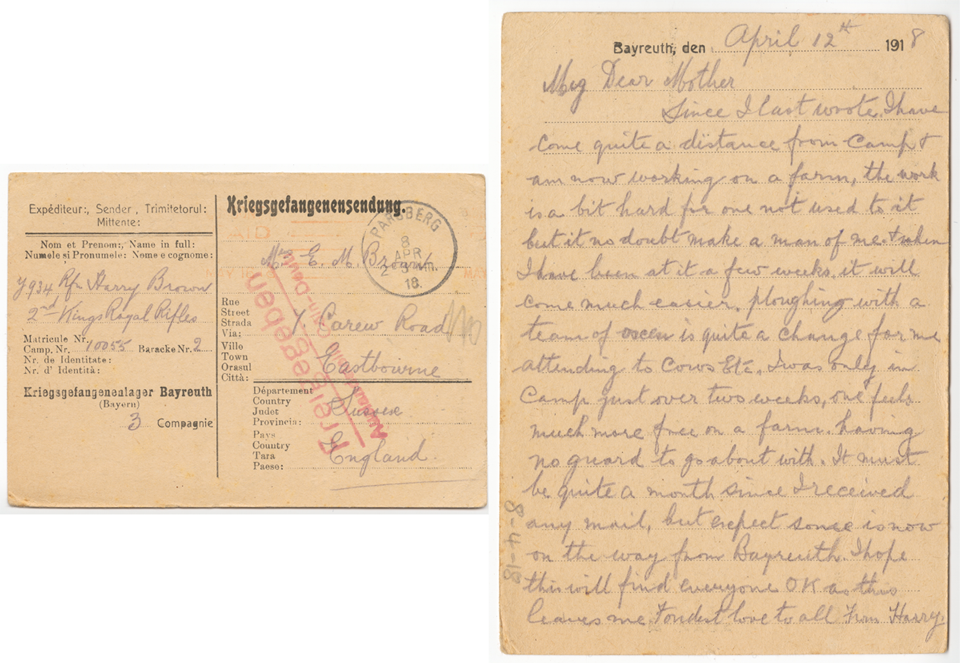 Expéditeur:, Sender, Trimitetorul:
Mittente:
Nom et Prenom:, Name in full:
Numele si Pronumele: Nome e cognome:
7934 Rfn Harry Brown
2nd Kings Royal Rifles
Matricule Nr.
Camp. Nr. 10055 Baracke Nr. 2
Nr. de Identitate:
Nr. d' Identità:
Kriegsgefangenenlager Bayreuth
(Bayern)
3 Compagnie
Kriegsgefangenensendung.
PARSBERG
8
APR
18.
Mrs E. M. Brown
Rue
Street
Strada
Via:
7 Carew Road
Ville
Town
Orasul
Città:
Eastbourne
Département
Country
Judet
Provincia:
Sussex
Pays
Country
Tara
Paese:
England.
Freigegeben
Bayreuth, den April 12th 1918
My Dear Mother
Since I last wrote, I have
come quite a distance from Camp &
am now working on a farm, the work
is a bit hard for one not used to it
but it no doubt make a man of me & when
I have been at it a few weeks it will
come much easier. ploughing with a
team of oxen is quite a change for me
attending to Cows Etc. I was only in
Camp just over two weeks, one feels
much more free on a farm. having
no guard to go about with. It must
be quite a month since I received
any mail, but expect some is now
on the way from Bayreuth. I hope
this will find everyone OK as this
leaves me. Fondest love to all from Harry.
8-4-18